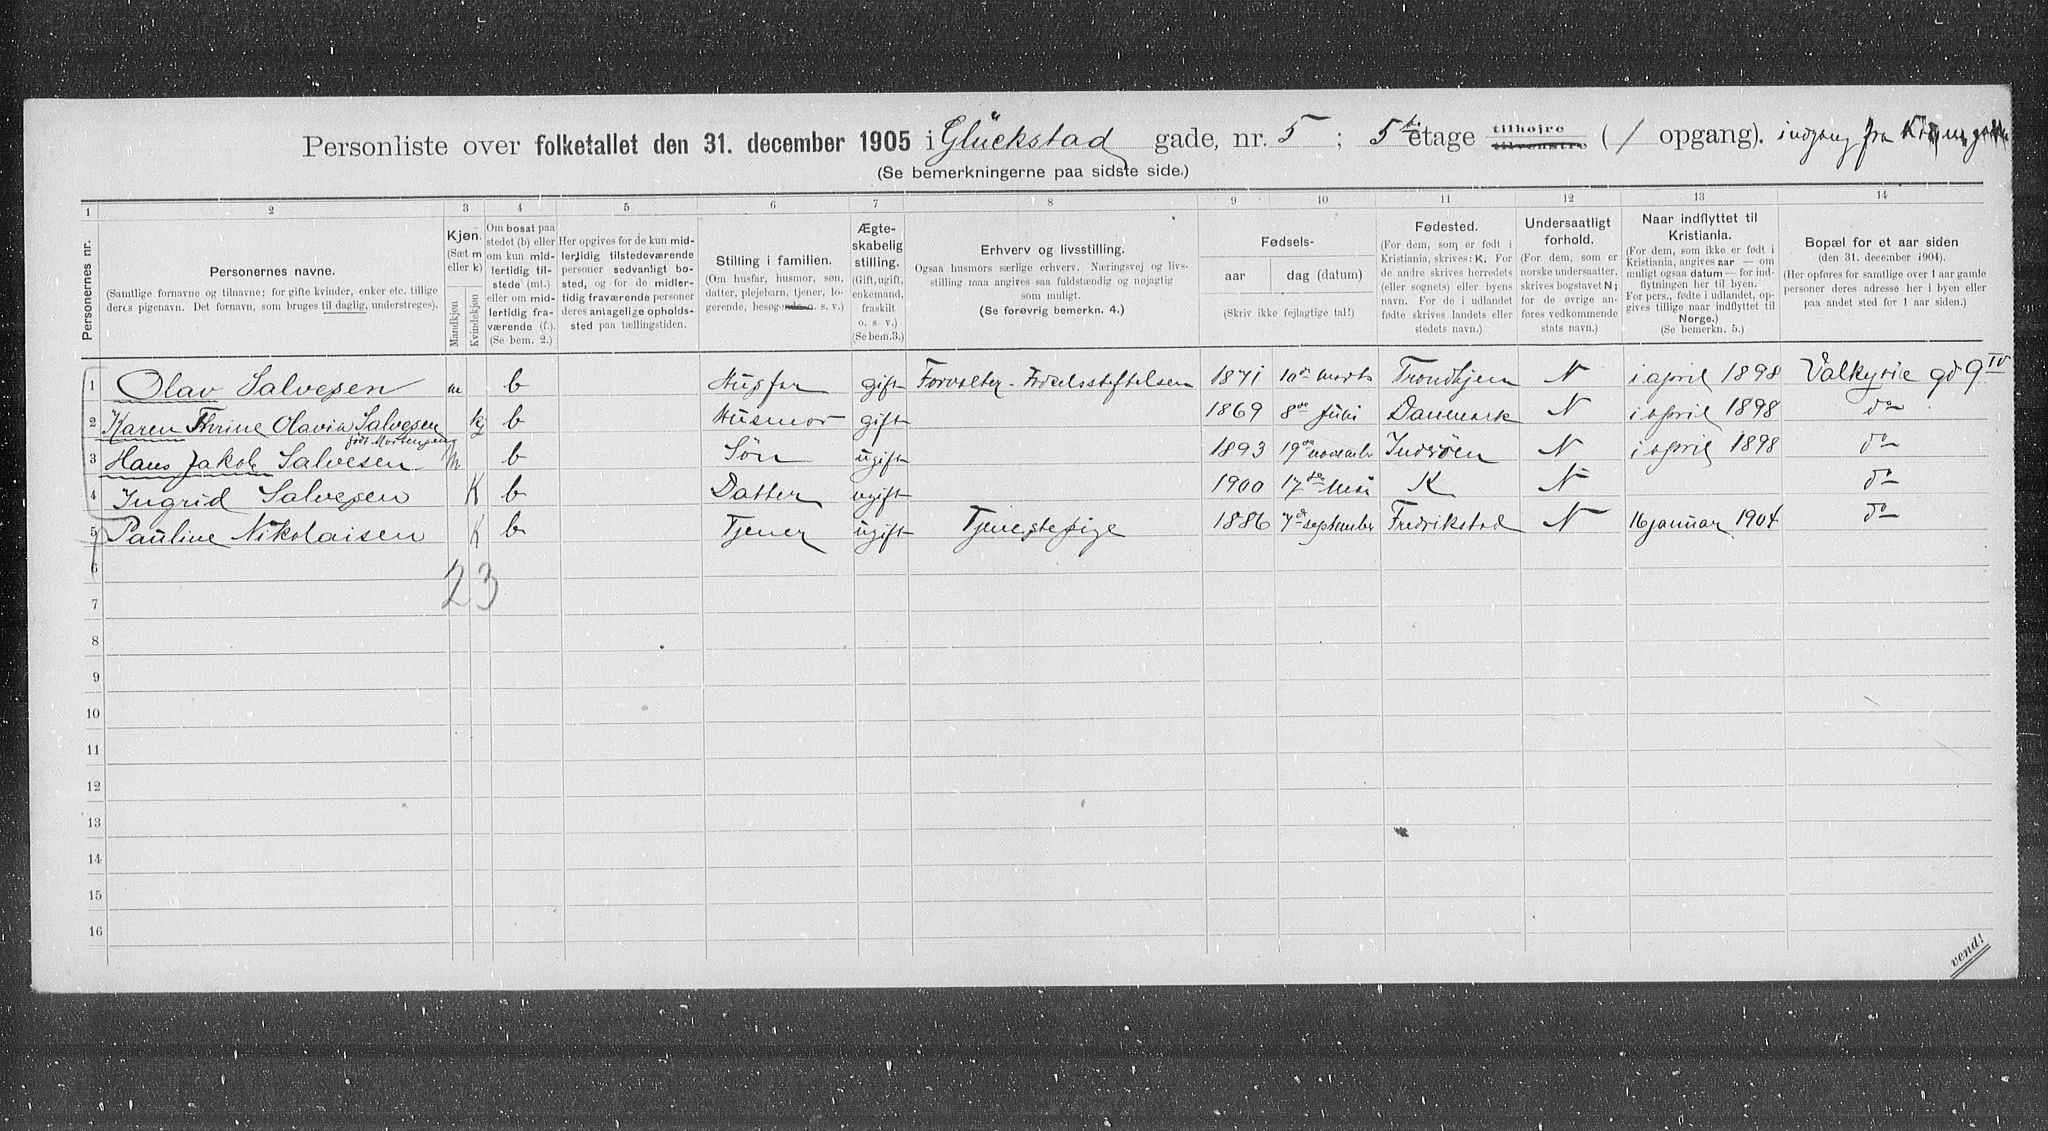 Personliste over folketallet den 31. december 1905 i Glückstad gade, nr. 5 ; 5te etage tilhøjre tilvenstre ( / opgang). indgang fra
(Se bemerkningerne paa sidste side.)
1 2 3 4 5 6 7 8 9 10 11 12 13 14
Personernes nr.
Personernes navne.
(Samtlige fornavne og tilnavne; for gifte kvinder, enker etc. tillige
deres pigenavn. Det fornavn, som bruges til daglig, understreges).
Kjøn.
(Sæt m
eller k)
Mandkjøn
Kvindekjøn
Om bosat paa
stedet (b) eller
om kun mid-
lertidig til-
stede (mt.)
eller om mid-
lertidig fra-
værende (f.).
(Se bem. 2.)
Her opgives for de kun mid-
lertidig tilstedeværende
personer sedvanligt bo-
sted, og for de midler-
tidig fraværende personer
deres antagelige opholds-
sted paa tællingstiden.
Stilling i familien.
(Om husfar, husmor, søn,
datter, plejebarn, tjener, lo-
gerende, besøgende o. s. v.)
Ægte-
skabelig
stilling.
(Gift, ugift,
enkemand,
fraskilt
o. s. v.)
(Se bem. 3.)
Erhverv og livsstilling.
Ogsaa husmors særlige erhverv. Næringsvej og livs-
stilling maa angives saa fuldstændig og nøjagtig
som muligt.
(Se forøvrig bemerkn. 4.)
Fødsels-
aar dag (datum)
(Skriv ikke fejlagtige tal!)
Fødested.
(For dem, som er født i
Kristiania, skrives: K. For
de andre skrives herredets
(eller sognets) eller byens
navn. For de i udlandet
fødte skrives landets eller
stedets navn.)
Undersaatligt
forhold.
(For dem, som er
norske undersaatter,
skrives bogstavet N;
for de øvrige an-
føres vedkommende
stats navn.)
Naar indflyttet til
Kristiania.
(For dem, som ikke er født i
Kristiania, angives aar — om
muligt ogsaa datum — for ind-
flytningen her til byen.
For pers., fødte i udlandet, op-
gives tillige naar indflyttet til
Norge.)
(Se bemerkn. 5.)
Bopæl for et aar siden
(den 31. december 1904).
(Her opføres for samtlige over 1 aar gamle
personer deres adresse her i byen eller
paa andet sted for 1 aar siden.)
1 Olav Salvesen m b Husfar gift Forvalter - Fødselsstiftelsen 1871 10de marts Trondhjem N i april 1898 Valkyrie gd 9 IV
2 Karen Thrine Olavia Salvesen født Mortensen k b Husmor gift 1869 8de juli Danmark N i april 1898 do
3 Hans Jakob Salvesen m b Søn ugift 1893 19de november Inderøen N i april 1898 do
4 Ingrid Salvesen K b Datter ugift 1900 17de Mai K N do
5 Pauline Nikolaisen K b Tjener ugift Tjenestepige 1886 7de september Fredrikstad N 16 januar 1904 do
6
23
7
8
9
10
11
12
13
14
15
16
vend!